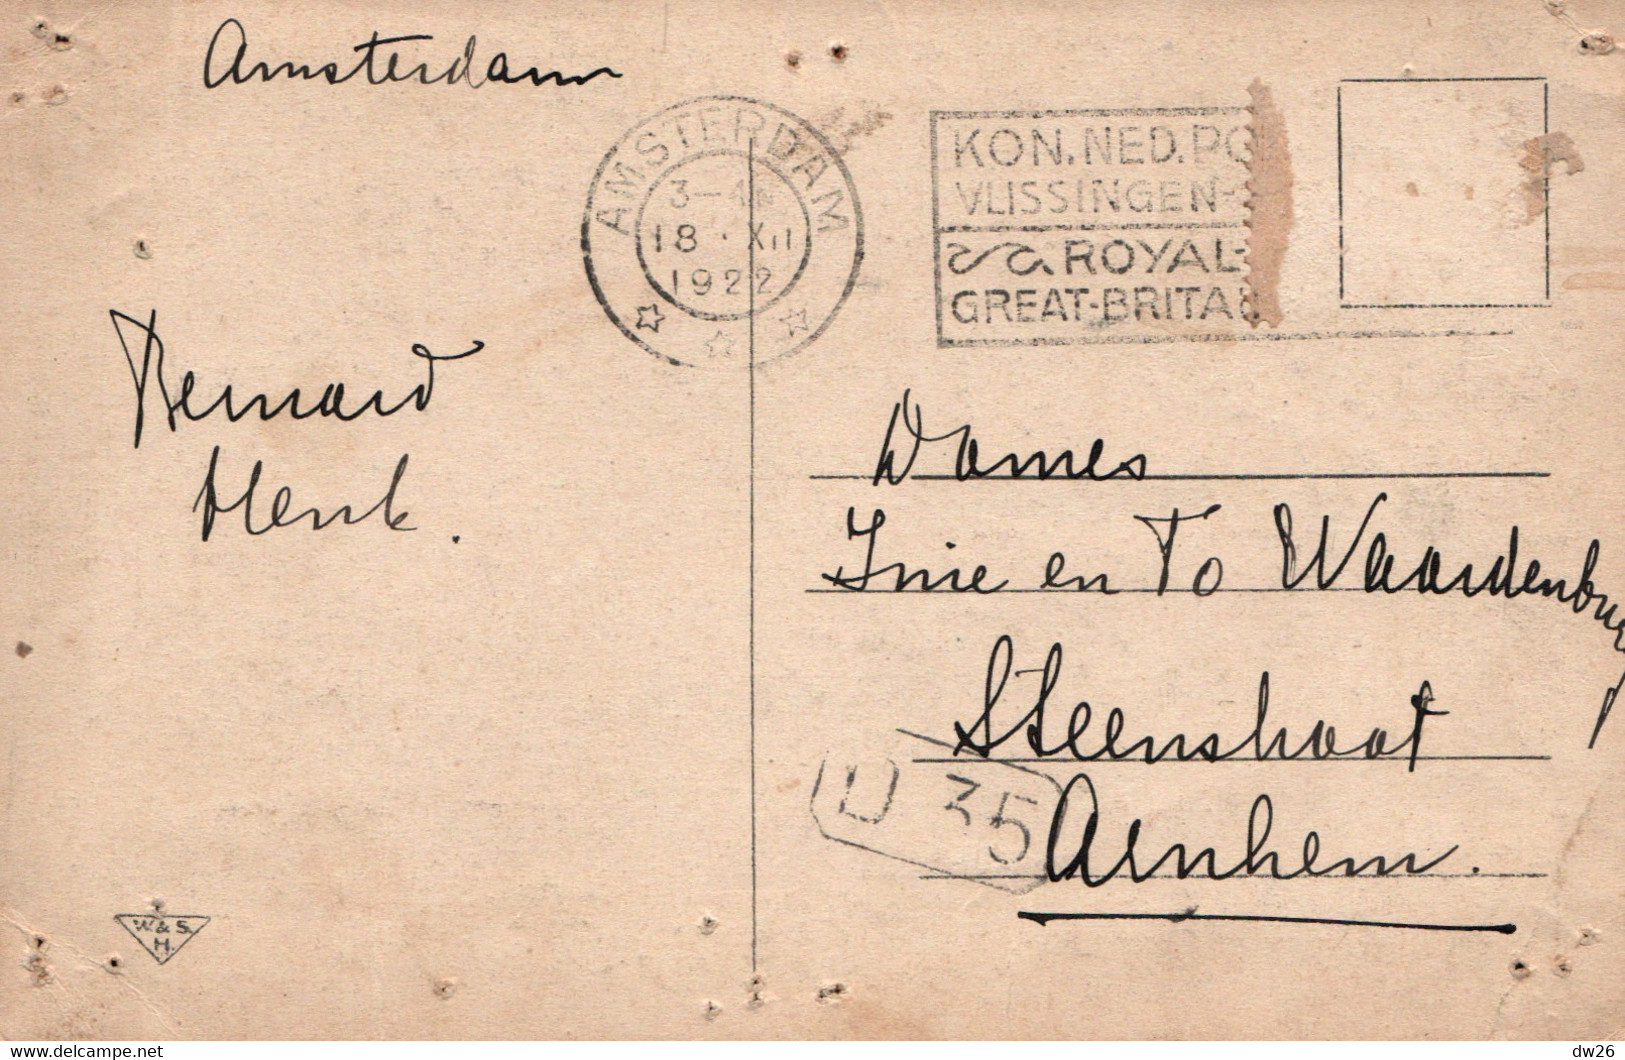 Amsterdam
AMSTERDAM
3-
18 · XII
1922
KON. NED. PO
VLISSINGEN-
ROYAL-
GREAT-BRITA
Bernard
Henk.
Dames
Inie en To Waardenburg
Steenshoot
Arnhem.
D 35
W & S.
H.
delcampe.net
dw26